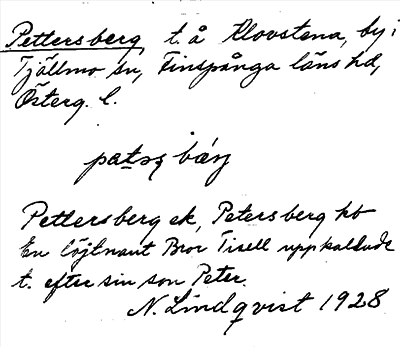 Pettersberg, t. å Klovstena, by i
Tjällmo sn, Finspånga läns hd,
Österg. l.
Pettersberg ek, Petersberg hb
En löjtnant Bror Tisell uppkallade
t. efter sin son Peter.
N. Lindqvist 1928